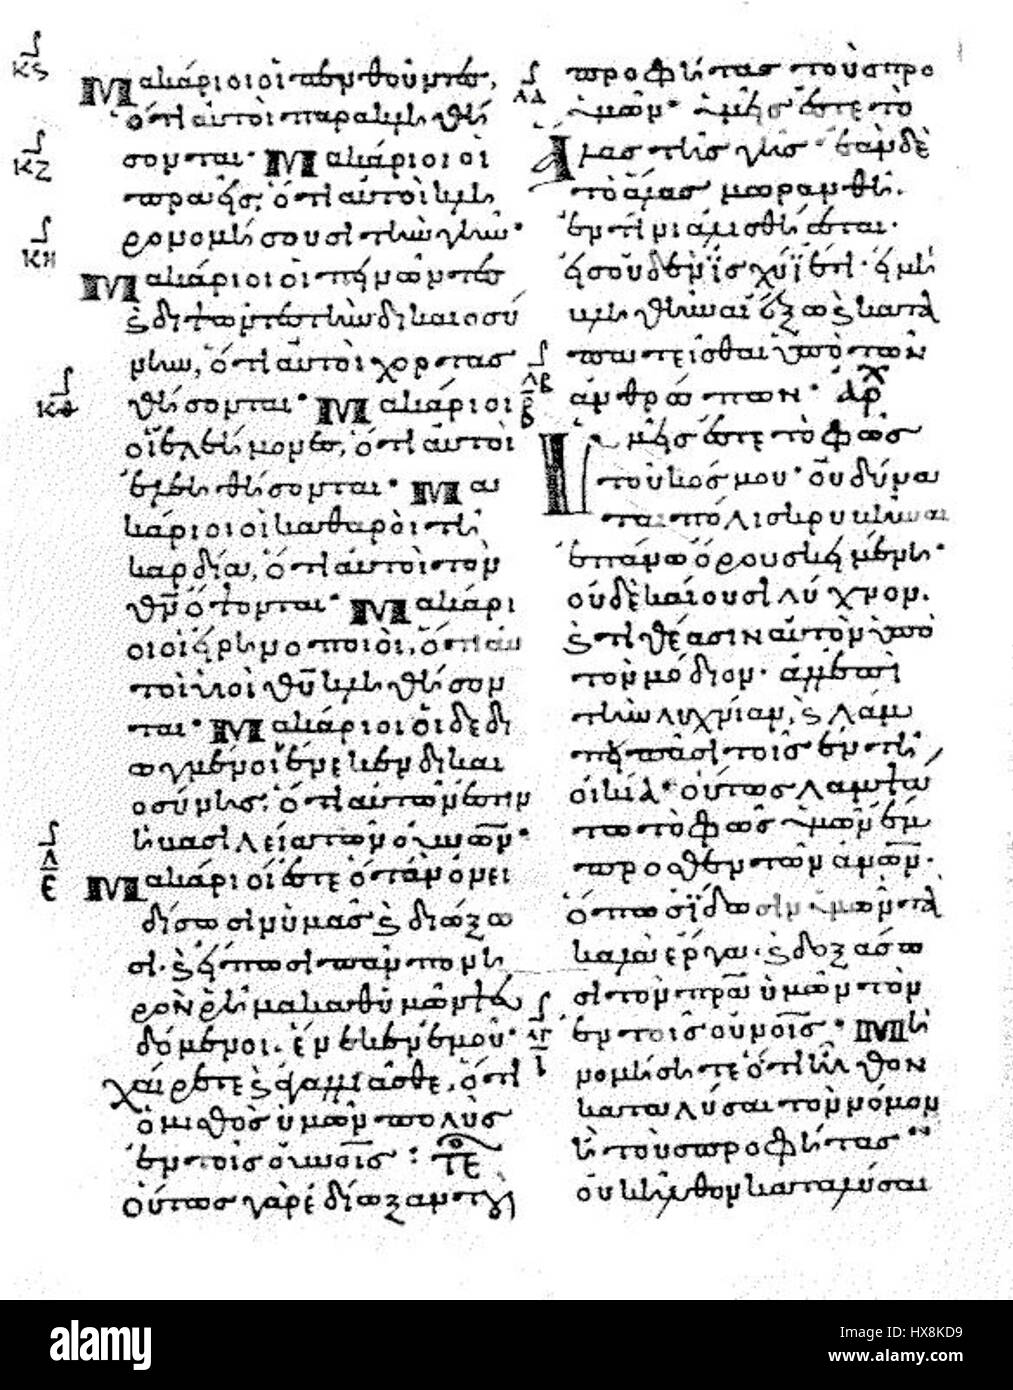 Μακάριοι οἱ πενθοῦντες,
ὅτι αὐτοὶ παρακληθή
σονται· Μακάριοι οἱ
πραεῖς, ὅτι αὐτοὶ κλη
ρονομήσουσι τὴν γῆν·
Μακάριοι οἱ πεινῶντες
ϗ διψῶντες τὴν δικαιοσύ
νην, ὅτι αὐτοὶ χορτασ
θήσονται· Μακάριοι
οἱ ἐλεήμονες, ὅτι αὐτοὶ
ἐλεηθήσονται· Μα
κάριοι οἱ καθαροὶ τῇ
καρδίᾳ, ὅτι αὐτοὶ τὸν
θν ὄψονται· Μακάρι
οι οἱ εἰρηνοποιοὶ, ὅτι αὐ
τοὶ υἱοὶ θυ κληθήσον
ται· Μακάριοι οἱ δεδι
ωγμένοι ἕνεκεν δικαι
οσύνης, ὅτι αὐτῶν ἐστιν
ἡ βασιλεία τῶν οὐνῶν·
Μακάριοί ἐστε ὅταν ὀνει
δίσωσιν ὑμᾶς ϗ διώξω
σι· ϗ εἴπωσι πᾶν πονη
ρὸν ῥῆμα καθ' ὑμῶν ψευ
δόμενοι· ἕνεκεν ἐμοῦ·
χαίρετε ϗ ἀγαλλιᾶσθε, ὅτι
ὁ μισθὸς ὑμῶν πολὺς
ἐν τοῖς οὐνοῖς : ΤΕ
οὕτως γὰρ ἐδίωξαν τοὺς
προφήτας τοὺς προ
ὑμῶν· ὑμεῖς ἐστε τὸ
ἅλας τῆς γῆς· ἐὰν δὲ
τὸ ἅλας μωρανθῇ·
ἐν τίνι ἁλισθήσεται·
εἰς οὐδὲν ἰσχύει ἔτι· εἰ μὴ
βληθῆναι ἔξω ϗ κατα
πατεῖσθαι ὑπὸ τῶν
ἀνθρώπων· ΑΡΧ
Ὑμεῖς ἐστε τὸ φῶς
τοῦ κόσμου· οὐ δύνα
ται πόλις κρυβῆναι
ἐπάνω ὄρους κειμένη·
οὐδὲ καίουσι λύχνον·
ϗ τιθέασιν αὐτὸν ὑπὸ
τὸν μόδιον· ἀλλ' ἐπὶ
τὴν λυχνίαν, ϗ λάμ
πει πᾶσι τοῖς ἐν τῇ
οἰκίᾳ· οὕτως λαμψά
τω τὸ φῶς ὑμῶν ἔμ
προσθεν τῶν ἀνων·
ὅπως ἴδωσιν ὑμῶν τὰ
καλὰ ἔργα· ϗ δοξάσω
σι τὸν πρα ὑμῶν τὸν
ἐν τοῖς οὐνοῖς· Μὴ
νομίσητε ὅτι ἦλθον
καταλῦσαι τὸν νόμον
ἢ τοὺς προφήτας·
οὐκ ἦλθον καταλῦσαι
alamy
Image ID: HX8KD9
www.alamy.com